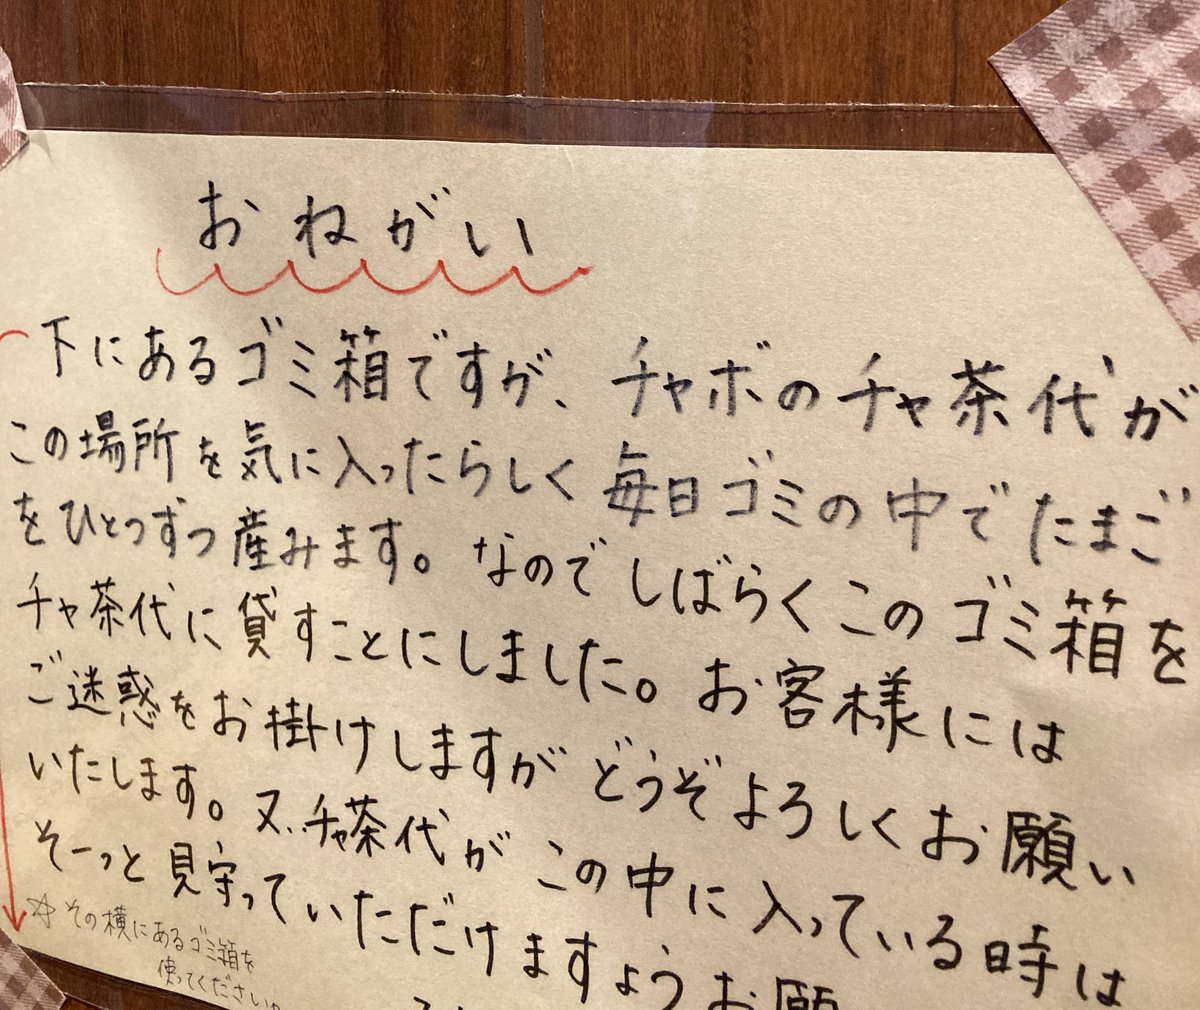 おねがい
下にあるゴミ箱ですが、チャボのチャ茶代が
この場所を気に入ったらしく毎日ゴミの中でたまご
をひとつずつ産みます。なのでしばらくこのゴミ箱を
チャ茶代に貸すことにしました。お客様には
ご迷惑をお掛けしますがどうぞよろしくお願い
いたします。又、チャ茶代がこの中に入っている時は
そーっと見守っていただけますようお願
☆その横にあるゴミ箱を
使ってください。